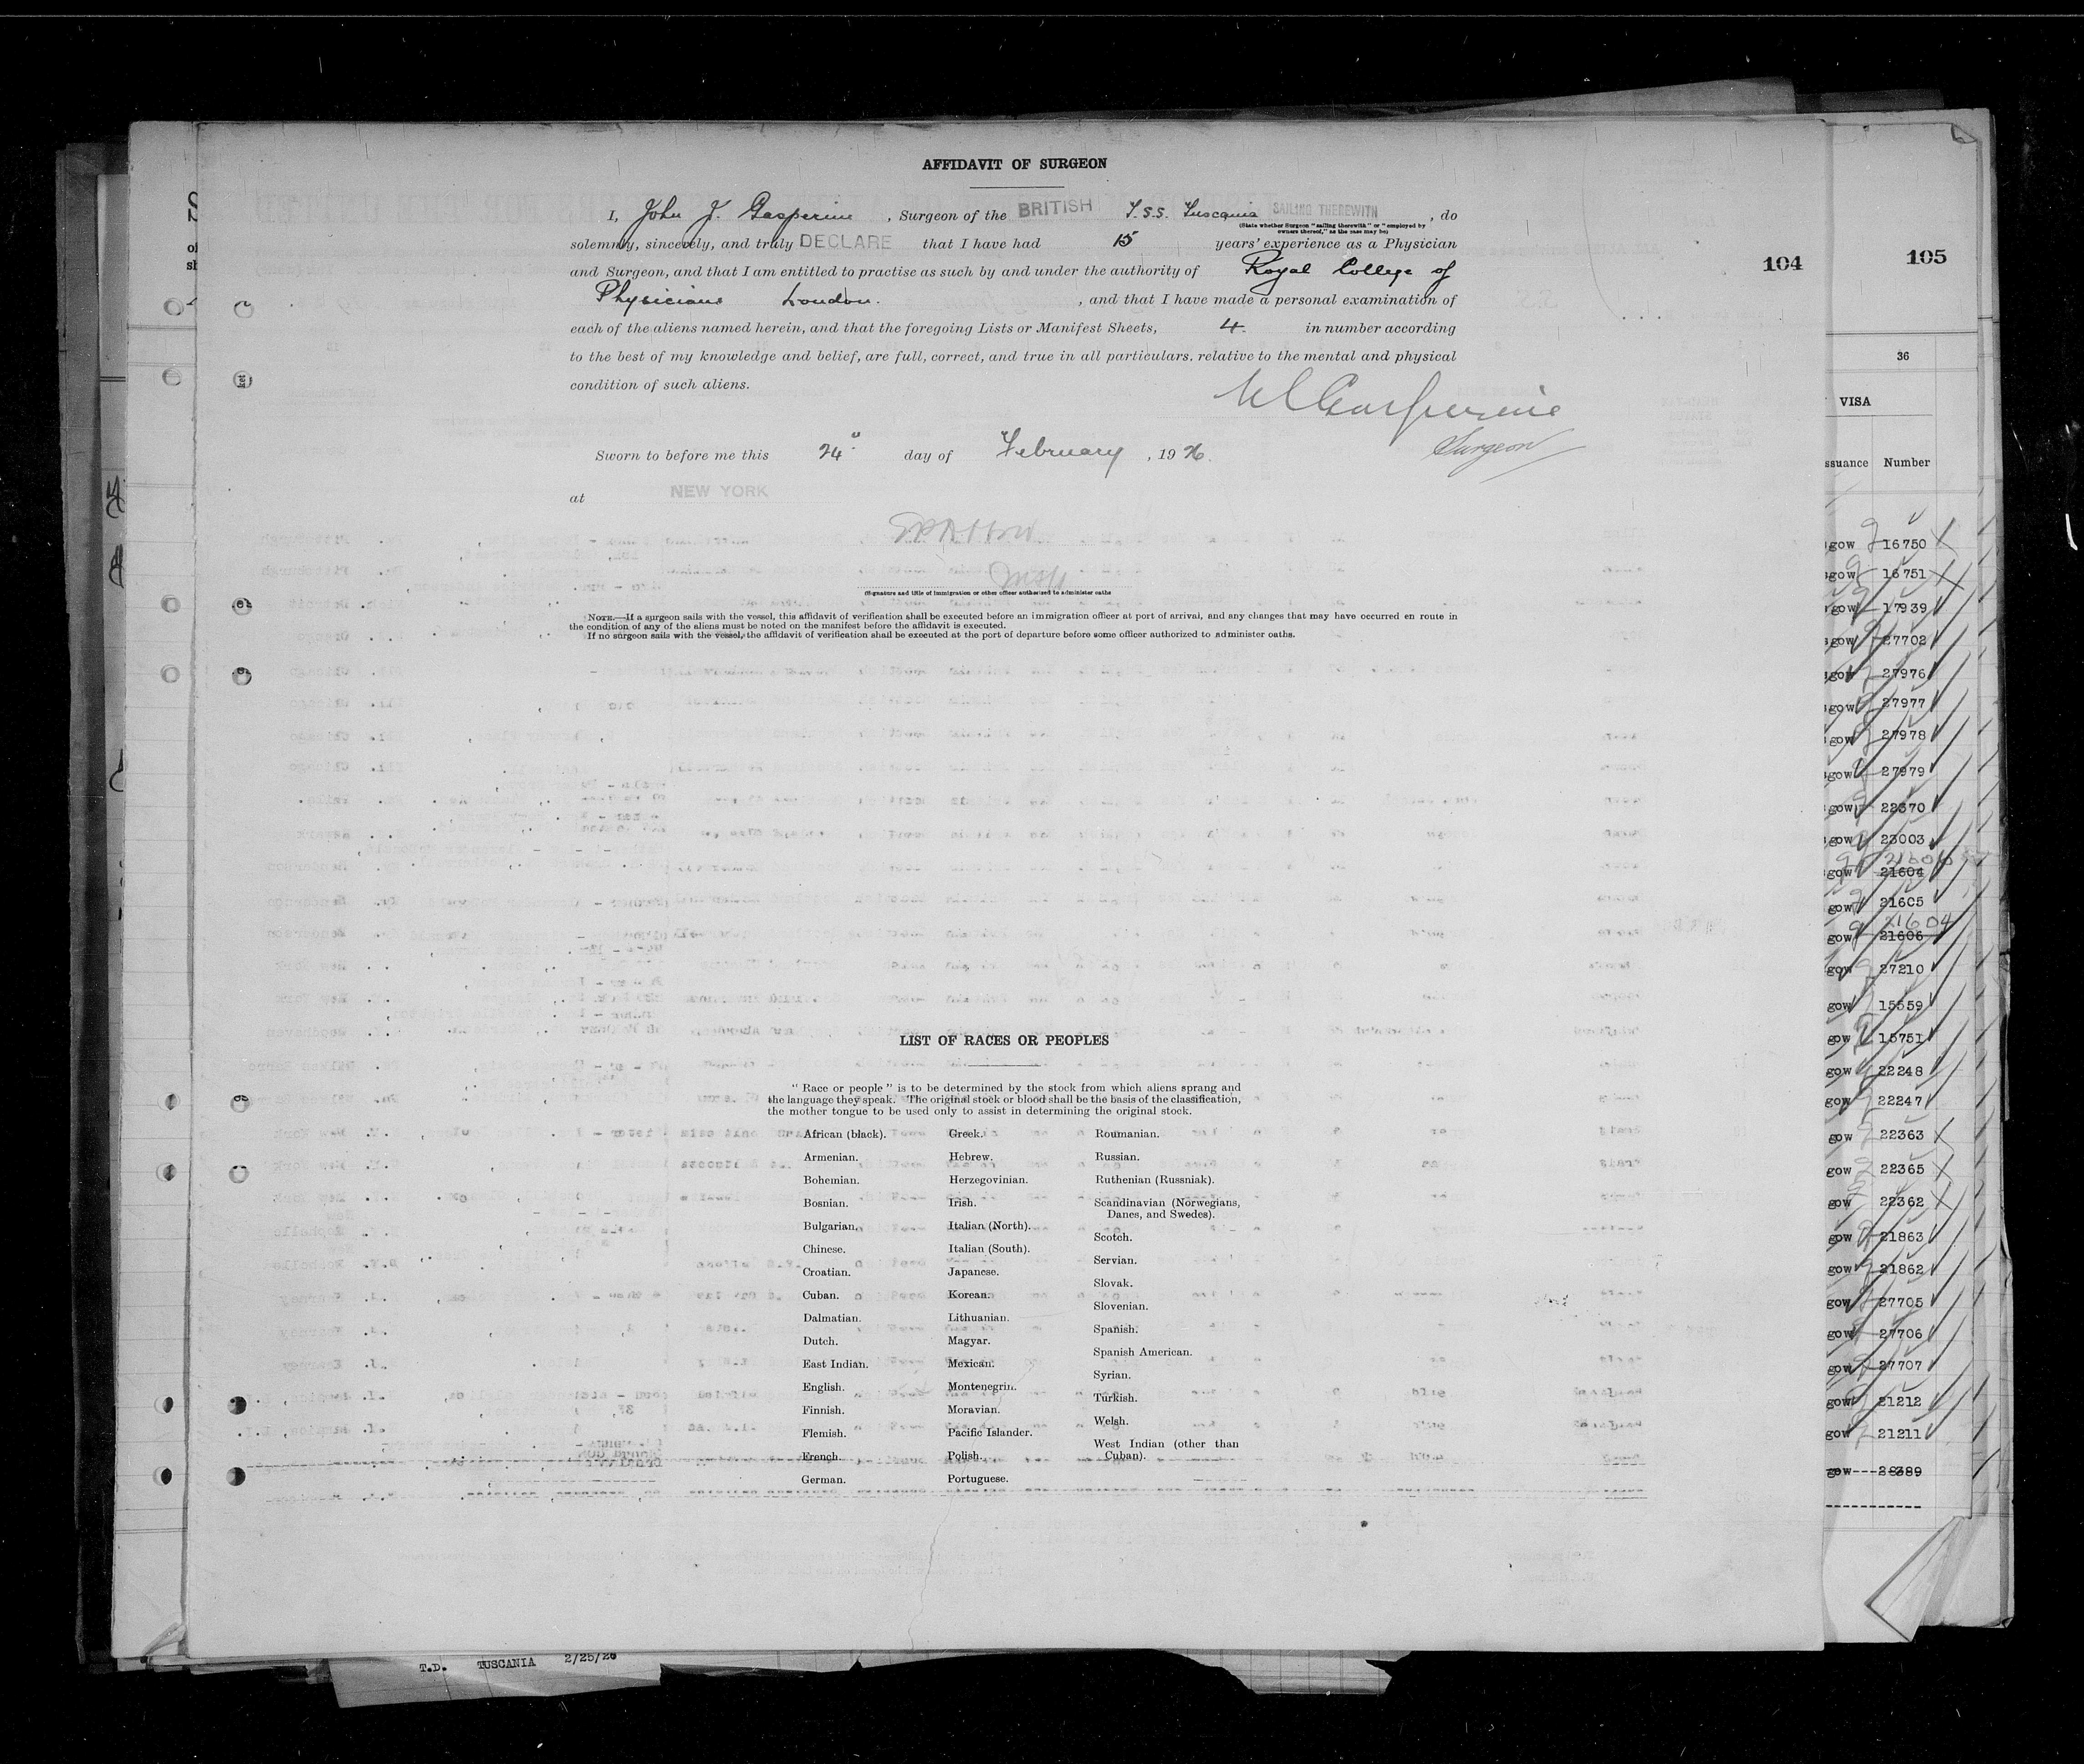 AFFIDAVIT OF SURGEON
I, John J. Gasperine, Surgeon of the BRITISH T.S.S. Tuscania SAILING THEREWITH, do
(State whether Surgeon "sailing therewith" or "employed by
owners thereof," as the case may be)
solemnly, sincerely, and truly DECLARE that I have had 15 years' experience as a Physician
and Surgeon, and that I am entitled to practise as such by and under the authority of Royal College of
Physicians London., and that I have made a personal examination of
each of the aliens named herein, and that the foregoing Lists or Manifest Sheets, 4. in number according
to the best of my knowledge and belief, are full, correct, and true in all particulars, relative to the mental and physical
condition of such aliens.
Surgeon
Sworn to before me this 24" day of February, 1926.
at NEW YORK
(Signature and title of immigration or other officer authorized to administer oaths
NOTE.—If a surgeon sails with the vessel, this affidavit of verification shall be executed before an immigration officer at port of arrival, and any changes that may have occurred en route in
the condition of any of the aliens must be noted on the manifest before the affidavit is executed.
If no surgeon sails with the vessel, the affidavit of verification shall be executed at the port of departure before some officer authorized to administer oaths.
LIST OF RACES OR PEOPLES
"Race or people" is to be determined by the stock from which aliens sprang and
the language they speak. The original stock or blood shall be the basis of the classification,
the mother tongue to be used only to assist in determining the original stock.
African (black).
Armenian.
Bohemian.
Bosnian.
Bulgarian.
Chinese.
Croatian.
Cuban.
Dalmatian.
Dutch.
East Indian.
English.
Finnish.
Flemish.
French.
German.
Greek.
Hebrew.
Herzegovinian.
Irish.
Italian (North).
Italian (South).
Japanese.
Korean.
Lithuanian.
Magyar.
Mexican.
Montenegrin.
Moravian.
Pacific Islander.
Polish.
Portuguese.
Roumanian.
Russian.
Ruthenian (Russniak).
Scandinavian (Norwegians,
Danes, and Swedes).
Scotch.
Servian.
Slovak.
Slovenian.
Spanish.
Spanish American.
Syrian.
Turkish.
Welsh.
West Indian (other than
Cuban).
104
105
36
VISA
ssuance Number
gow 16750
gow 16751
gow 17939
gow 27702
gow 27976
gow 27977
gow 27978
gow 27979
gow 22370
gow 23003
gow 21604
gow 21605
21604
gow 21606
gow 27210
gow 15559
gow 15751
gow 22248
gow 22247
gow 22363
gow 22365
gow 22362
gow 21863
gow 21862
gow 27705
gow 27706
gow 27707
gow 21212
gow 21211
gow---28389
T.D. TUSCANIA 2/25/26